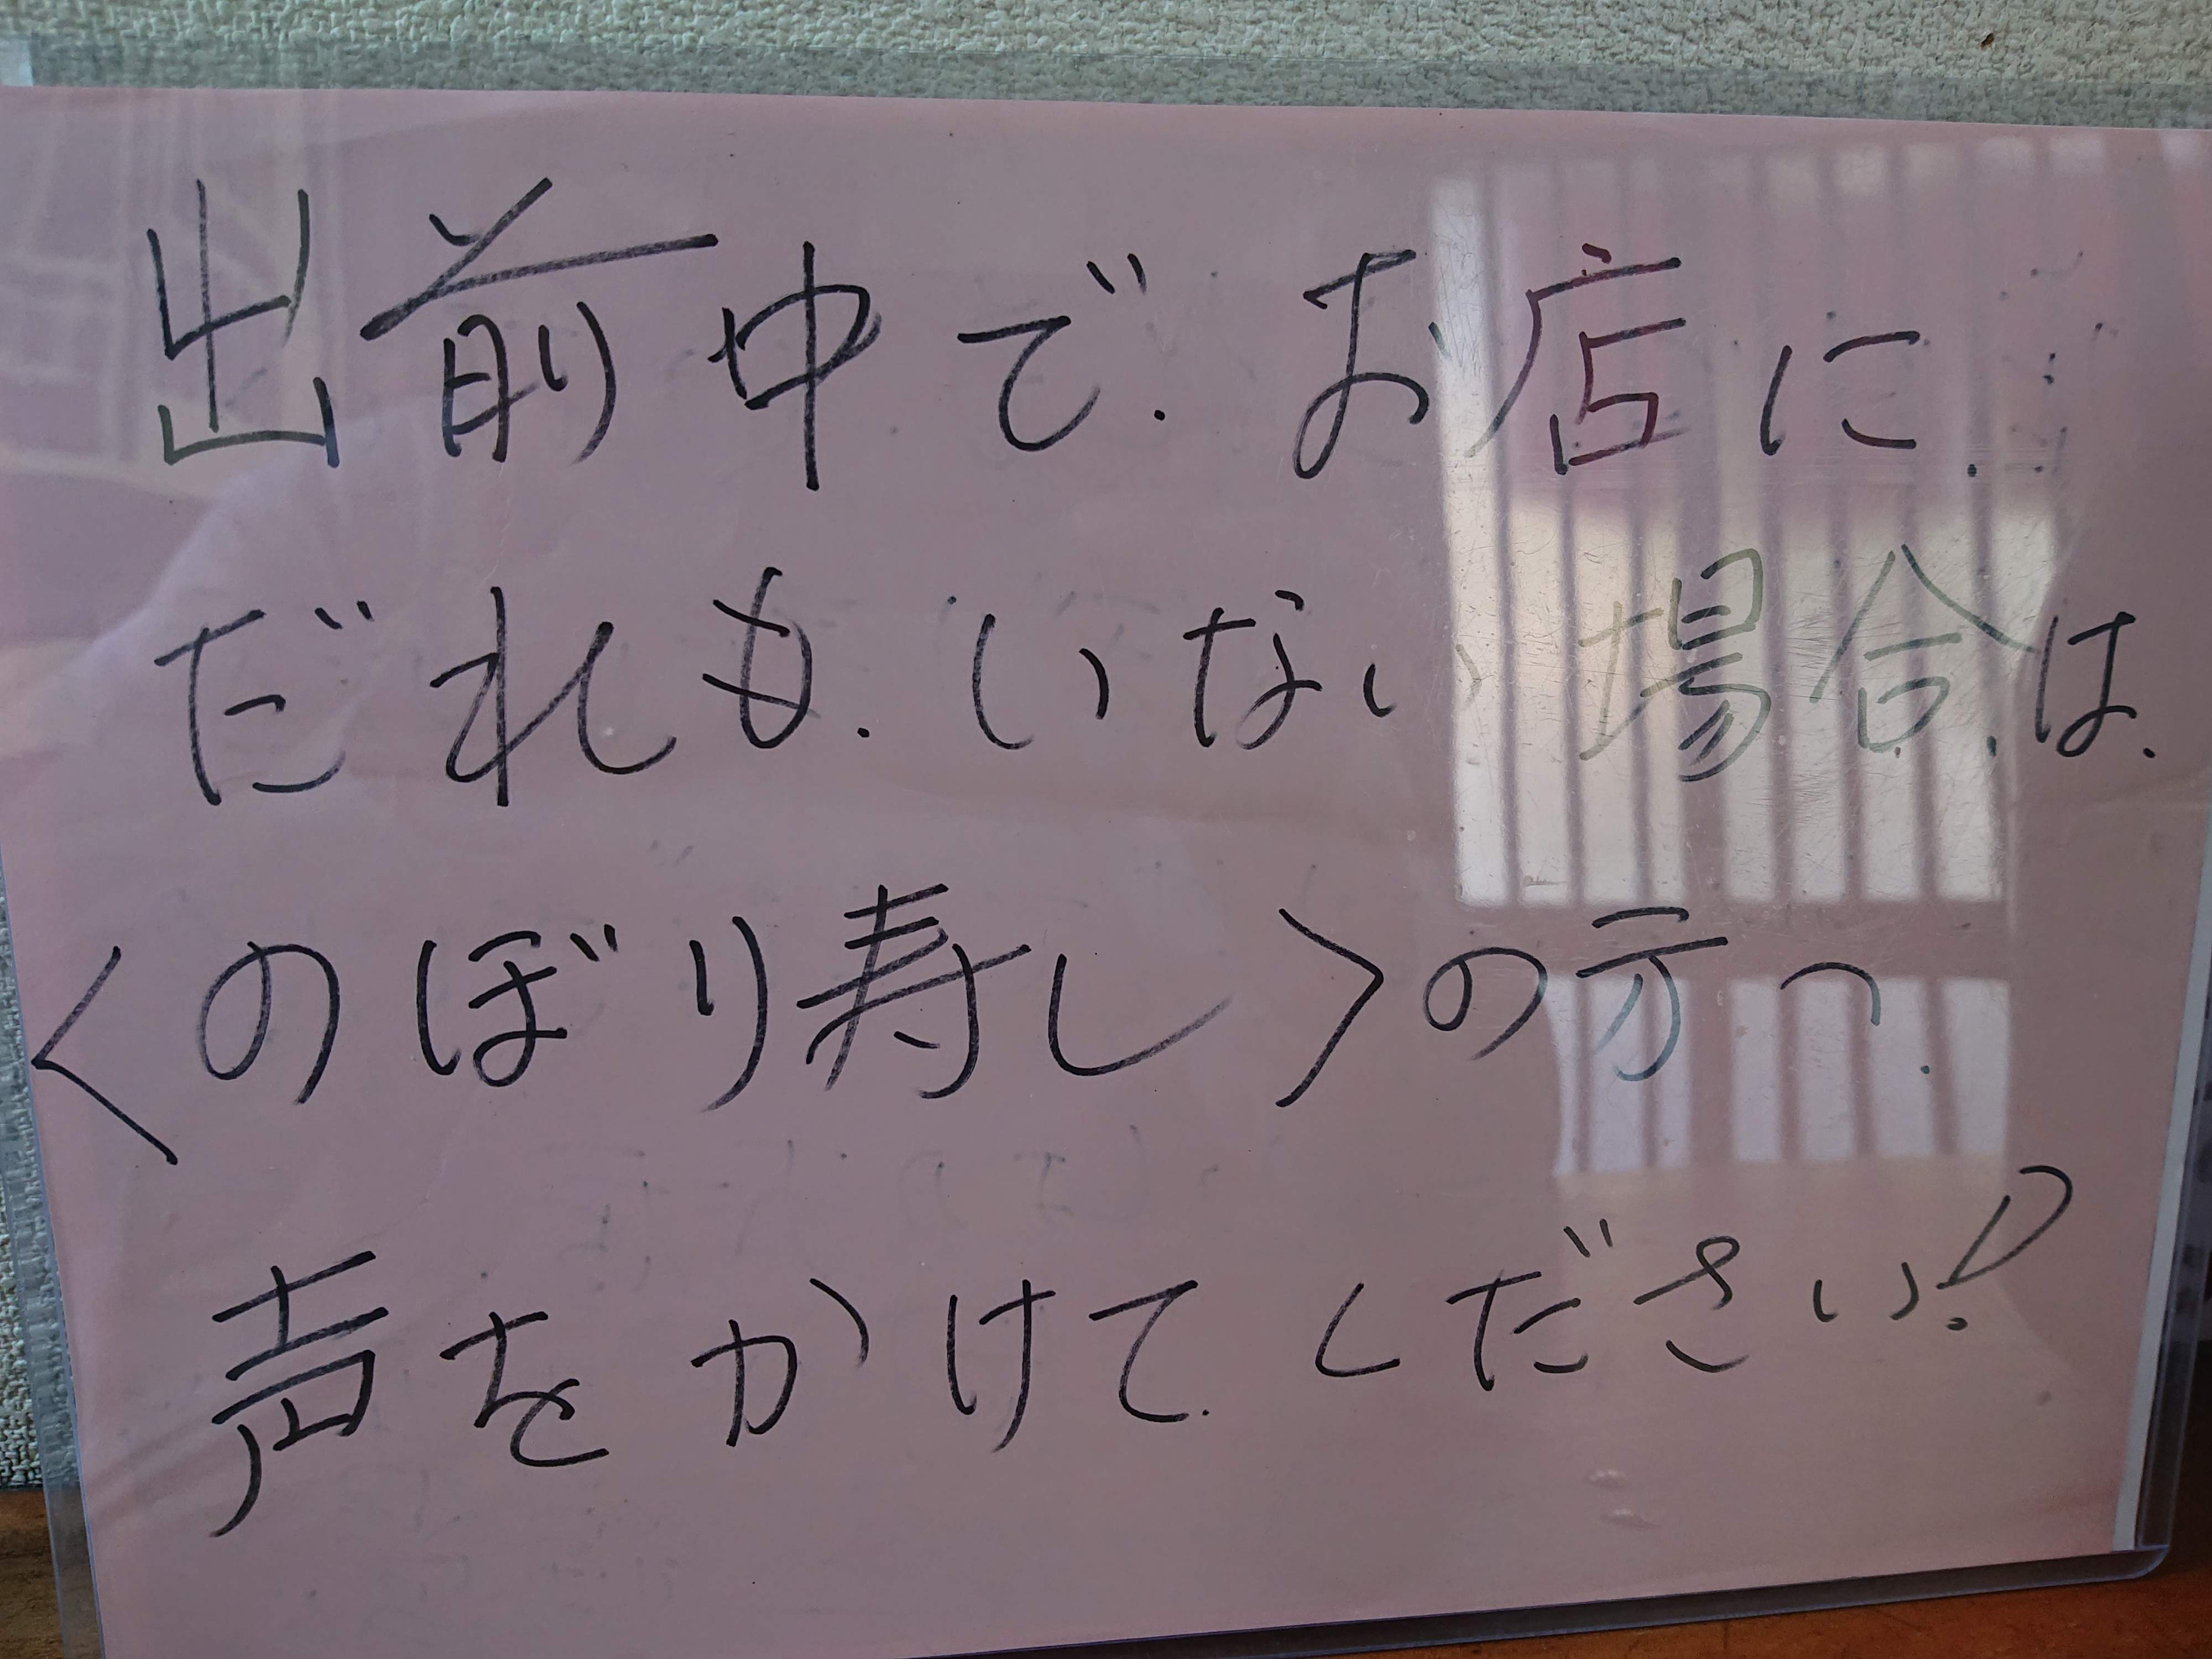 出前中で.お店に.
だれも.いない場合.は.
〈のぼり寿し〉の方へ.
声をかけて.ください!